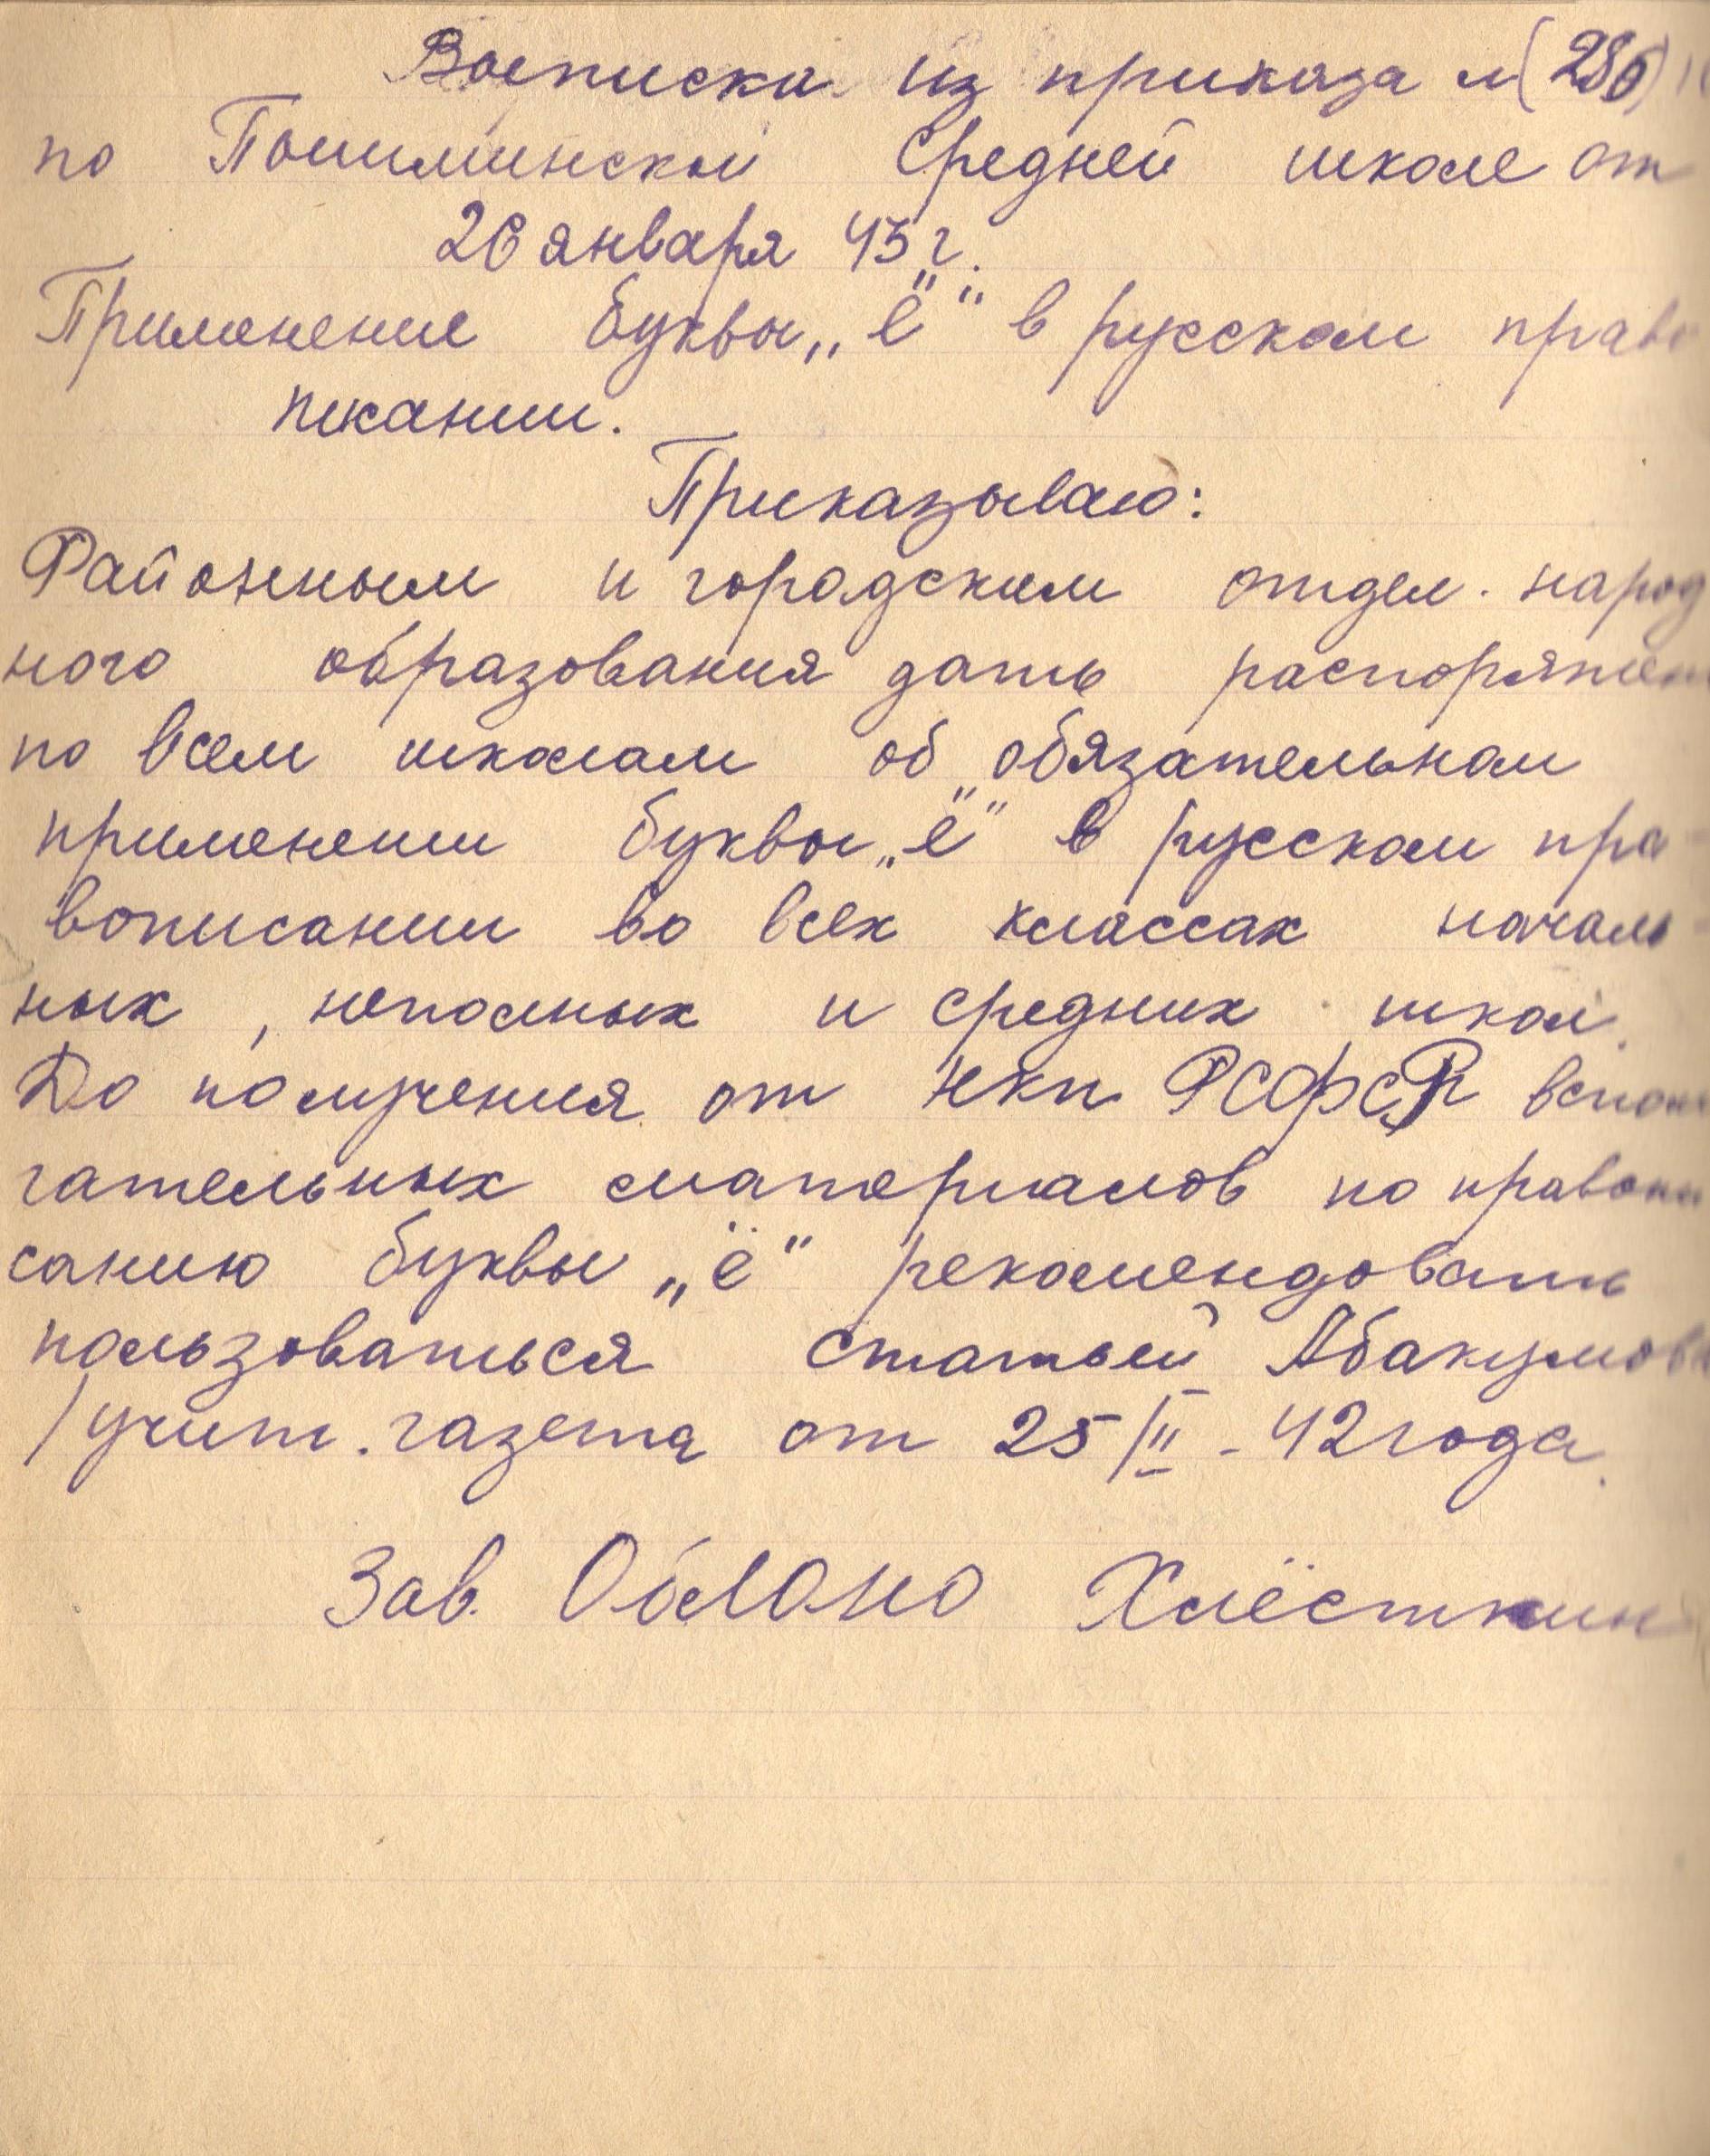 Выписка из приказа м (286)
по Пошиминской Средней школе от
26 января 43 г.
Применение буквы „ё“ в русском право
писании.
Приказываю:
Районным и городским отдел. народ
ного образования дать распоряжен
по всем школам об обязательном
применении буквы „ё“ в русском пра-
вописании во всех классах началь-
ных, неполных и средних школ.
До получения от Нкп РСФСР вспом
гательных материалов по правопи
санию буквы „ё“ рекомендовать
пользоваться статьей Абакумова
/учит. газета от 25/II - 42 года.
Зав. ОблОНО Хлёсткин